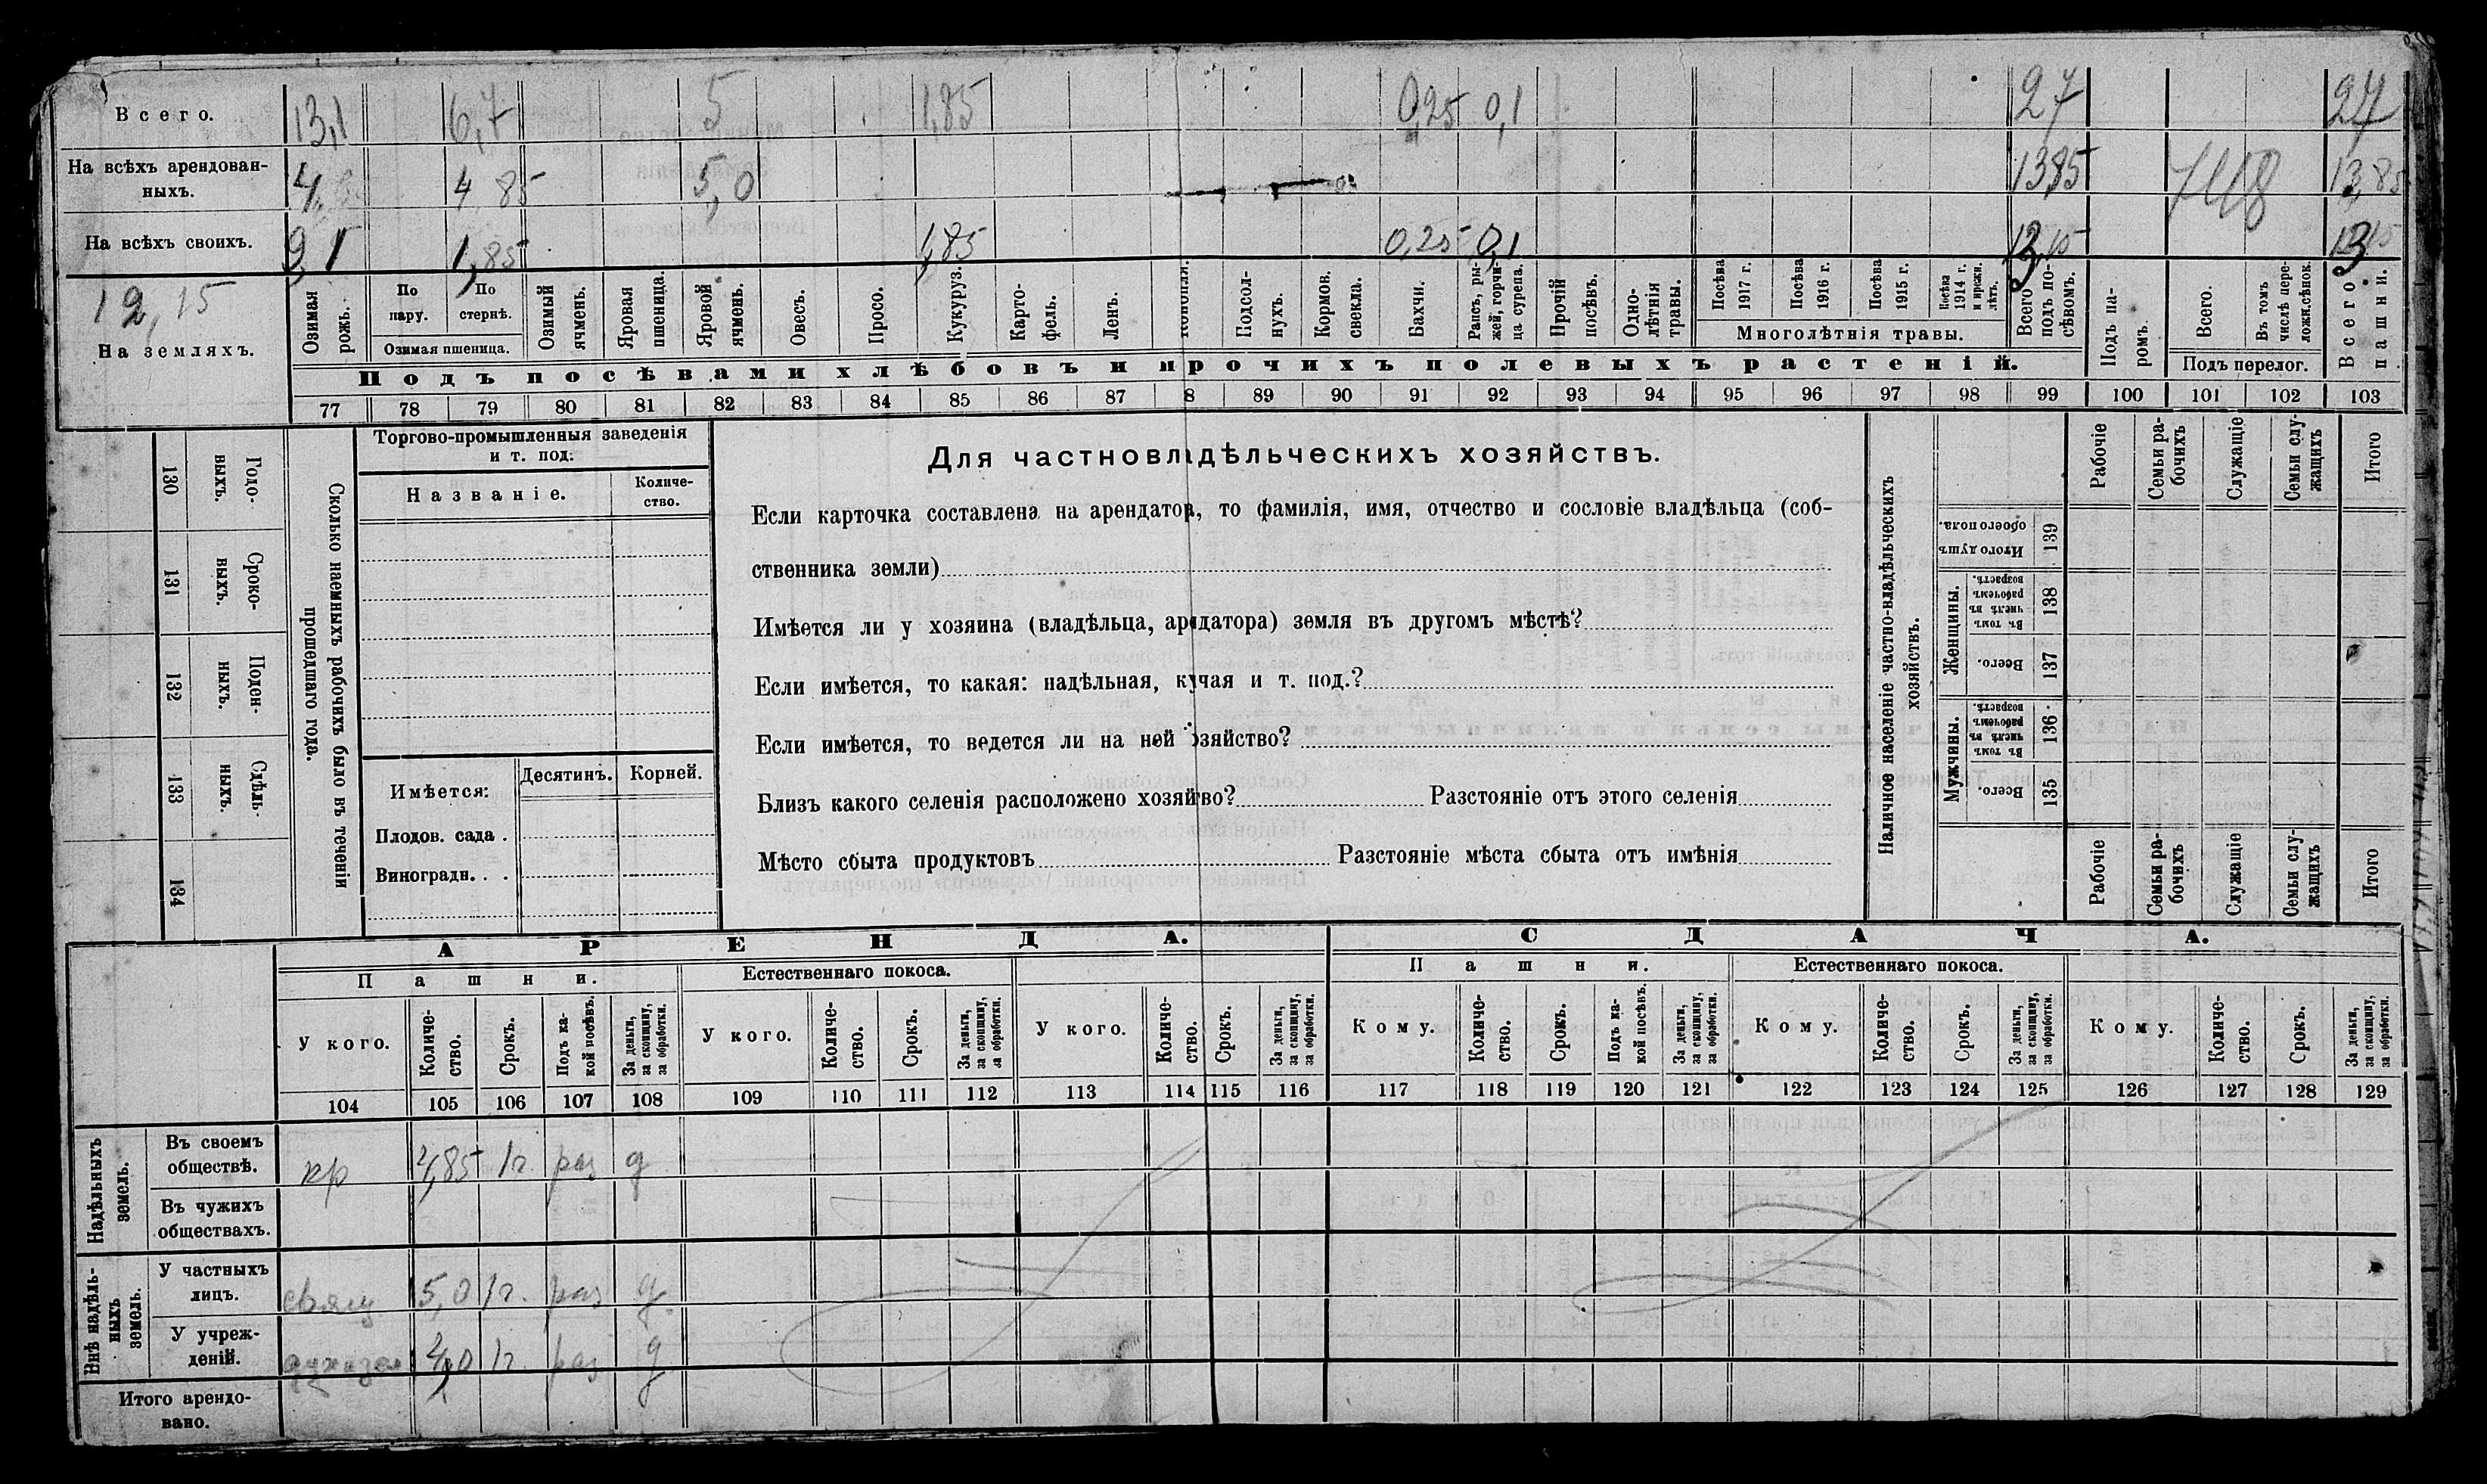 Всего. 13,1 6,7 5 1,85 0,25 0,1 27 27
На всѣхъ арендован-
ныхъ. 4, 4 85 5,0 13,85 13,85
На всѣхъ своихъ. 9 1 1,85 1,85 0,25 0,1 13,15 13,15
12,15
На земляхъ.
Озимая рожь.
По пару.
По стернѣ.
Озимая пшеница.
Озимый ячмень.
Яровая пшеница.
Яровой ячмень.
Овесъ.
Просо.
Кукуруз.
Карто-
фель.
Ленъ.
Конопля.
Подсол-
нухъ.
Кормов. свекла.
Бахчи.
Рапсъ, ры-
жей, горчи-
ца сурепа.
Прочій посѣвъ.
Одно-
лѣтнія травы.
Посѣва 1917 г.
Посѣва 1916 г.
Посѣва 1915 г.
Посѣва 1914 г. и прежн. лѣтъ.
Многолѣтнія травы.
Всего подъ по-
сѣвомъ.
Подъ па-
ромъ.
Всего.
Въ томъ числѣ пере-
ложн.сѣнок.
Подъ перелог.
Всего пашни.
Подъ посѣвами хлѣбовъ и прочихъ полевыхъ растеній.
77 78 79 80 81 82 83 84 85 86 87 8 89 90 91 92 93 94 95 96 97 98 99 100 101 102 103
130 Годо-
выхъ.
131 Сроко-
выхъ.
132 Поден-
ныхъ.
133 Сдѣль-
ныхъ.
134
Сколько наемныхъ рабочихъ было въ теченіи
прошедшаго года.
Торгово-промышленныя заведенія
и т. под.
Названіе.
Количе-
ство.
Имѣется: Десятинъ. Корней.
Плодов. сада .
Виноградн. . .
Для частновладѣльческихъ хозяйствъ.
Если карточка составлена на арендатора, то фамилія, имя, отчество и сословіе владѣльца (соб-
ственника земли)
Имѣется ли у хозяина (владѣльца, аридатора) земля въ другомъ мѣстѣ?
Если имѣется, то какая: надѣльная, кучая и т. под.?
Если имѣется, то ведется ли на ней озяйство?
Близъ какого селенія расположено хозяйво? Разстояніе отъ этого селенія
Мѣсто сбыта продуктовъ Разстояніе мѣста сбыта отъ имѣнія
Наличное населеніе частно-владѣльческихъ
хозяйствъ.
Рабочіе
Семьи ра-
бочихъ
Служащіе
Семьи слу-
жащихъ
Итого
Итого душъ обоего пола. 139
Женщины.
Въ томъ числѣ въ рабочемъ возрастѣ. 138
Всего. 137
Мужчины.
Въ томъ числѣ въ рабочемъ возрастѣ. 136
Всего. 135
Рабочіе
Семьи ра-
бочихъ
Служащіе
Семьи слу-
жащихъ
Итого
АРЕНДА. СДАЧА.
Пашни. Естественнаго покоса. Пашни. Естественнаго покоса.
У кого. Количе-
ство. Срокъ. Подъ ка-
кой посѣвъ. За деньги,
за скопщину,
за обработки.
У кого. Количе-
ство. Срокъ. За деньги,
за скопщину,
за обработки.
У кого. Количе-
ство. Срокъ. За деньги,
за скопщину,
за обработки.
Кому. Количе-
ство. Срокъ. Подъ ка-
кой посѣвъ. За деньги,
за скопщину,
за обработки.
Кому. Количе-
ство. Срокъ. За деньги,
за скопщину,
за обработки.
Кому. Количе-
ство. Срокъ. За деньги,
за скопщину,
за обработки.
104 105 106 107 108 109 110 111 112 113 114 115 116 117 118 119 120 121 122 123 124 125 126 127 128 129
Надѣльныхъ
земель.
Въ своемъ
обществѣ. кр 4,85 1г. раз д
Въ чужихъ
обществахъ.
Внѣ надѣль-
ныхъ
земель.
У частныхъ
лицъ. 5,0 1г. раз д
У учреж-
деній. 4,0 1г раз д
Итого арендо-
вано.